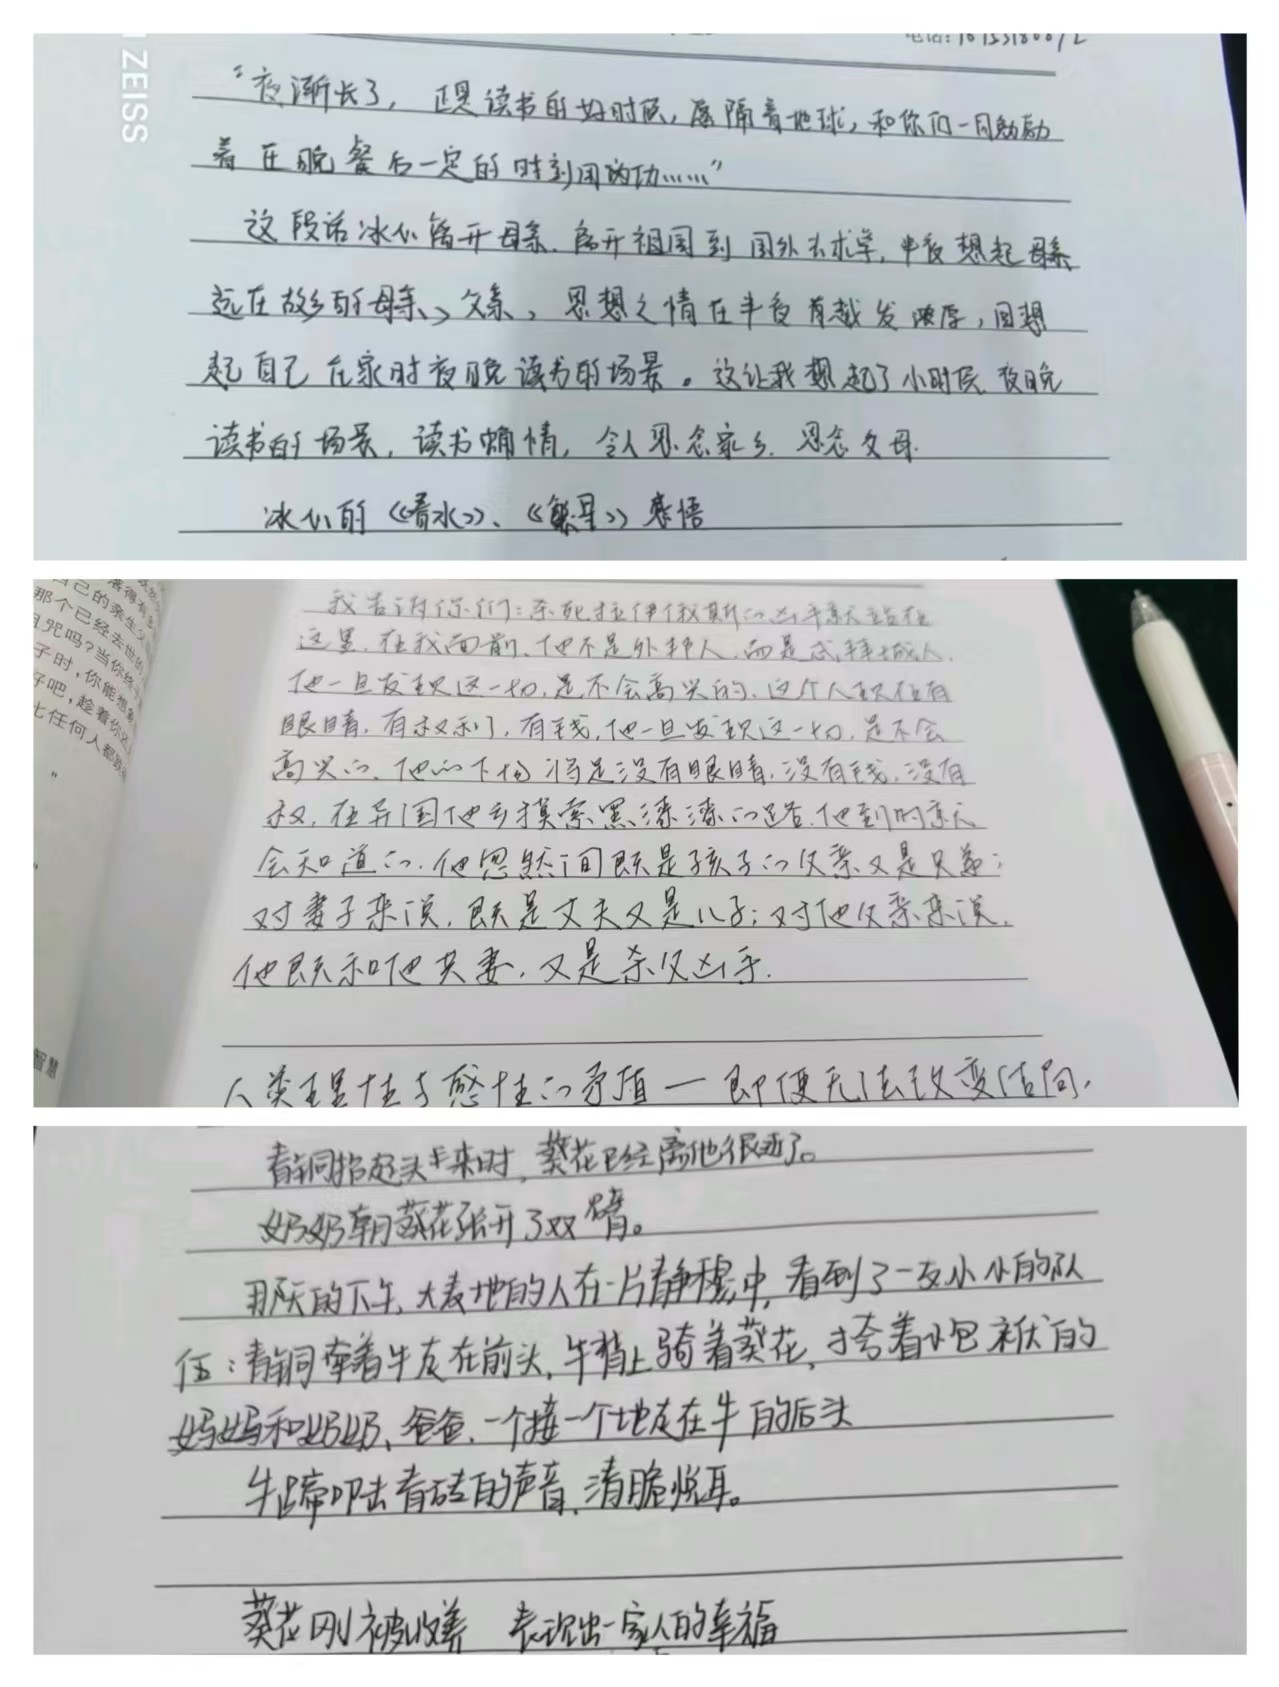 ZEISS
电话:
“夜渐长了，正是读书的好时候，愿隔着地球，和你们一同勉励
着在晚餐后一定的时刻用功……”
这段话冰心离开母亲.离开祖国到国外去求学,半夜想起母亲
远在故乡的母亲、父亲，思想之情在半夜有越发浓厚，回想
起自己在家时夜晚读书的场景。这让我想起了小时候夜晚
读书的场景，读书情，令人思念家乡.思念父母.
冰心的《春水》、《繁星》感悟
落得有
自己的亲生父
那个已经去世的
诅咒吗?当你终
子时，你能想象
好吧，趁着你还
比任何人都
”
智慧
我告诉你们:杀死拉伊俄斯的凶手就站在
这里,在我面前,他不是外邦人,而是忒拜城人,
他一旦发现这一切,是不会高兴的,这个人现在有
眼睛,有权利,有钱,他一旦发现这一切,是不会
高兴的,他的下场将是没有眼睛,没有钱,没有
权,在异国他乡摸索黑漆漆的路,他到时就
会知道的.他忽然间既是孩子的父亲又是兄弟;
对妻子来说,既是丈夫又是儿子;对他父亲来说,
他既和他共妻,又是杀父凶手.
人类理性与感性的矛盾—即便无法改变结局,
青铜抬起头来时，葵花已经离他很近了。
奶奶朝葵花张开了双臂。
那天的下午,大麦地的人在一片静穆中,看到了一支小小的队
伍：青铜牵着牛走在前头,牛背上骑着葵花,挎着小包袱的
妈妈和奶奶、爸爸,一个接一个地走在牛的后头
牛蹄叩击青砖的声音,清脆悦耳。
葵花刚被收养 表现出一家人的幸福